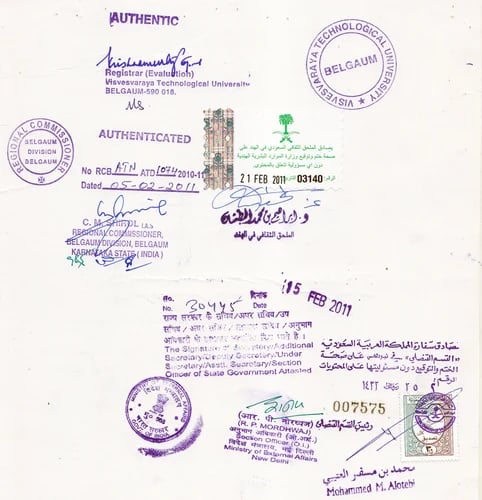 AUTHENTIC
Registrar (Evaluation)
Visvesvaraya Technological University
BELGAUM-590 018.
VISVESVARAYA TECHNOLOGICAL UNIVERSITY
BELGAUM
REGIONAL COMMISSIONER
BELGAUM
DIVISION
BELGAUM
AUTHENTICATED
No RCB ATN ATD 2010-11
Dated 05-02-2011
C. M. SHIROL IAS
REGIONAL COMMISSIONER,
BELGAUM DIVISION, BELGAUM
KARNATAKA STATE (INDIA)
يصادق الملحق الثقافي السعودي في الهند على
صحة ختم وتوقيع وزارة الموارد البشرية الهندية
دون أي مسؤولية تتعلق بالمحتوى.
21 FEB 2011 03140
د. ابراهيم بن محمد
الملحق الثقافي في الهند
No. 30445 दिनांक Date 15 FEB 2011
राज्य सरकार के सचिव/अपर सचिव/उप
सचिव / अवर सचिव / सहायक सचिव / अनुभाग
The Signature of Secretary/Additional
Secretary/Deputy Secretary/Under
Secretary/Asstt. Secretary/Section
Officer of State Government Attested
تصادق سفارة المملكة العربية السعودية
الختم والتوقيع دون مسئوليتها على المحتويات
الرقم
رئيس القسم القنصلي 007575
(R. P. MORDHWAJ)
अनुभाग अधिकारी (ओ.आई.)
Section Officer (O.I.)
विदेश मंत्रालय, नई दिल्ली
Ministry of External Affairs
New Delhi
محمد بن مسفر العتيبي
Mohammed M. Alotebi